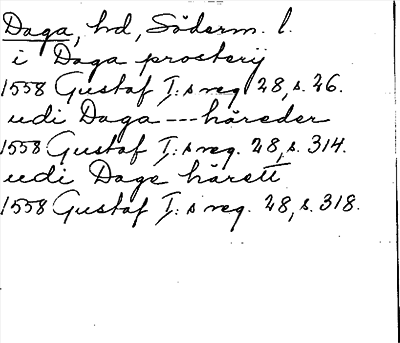 Daga, hd, Söderm. l.
i Daga prosterij
1558 Gustaf I:s reg. 28, s. 26.
udi Daga --- häreder
1558 Gustaf I:s reg. 28, s. 314.
udi Dage härett
1558 Gustaf I:s reg. 28, s. 318.